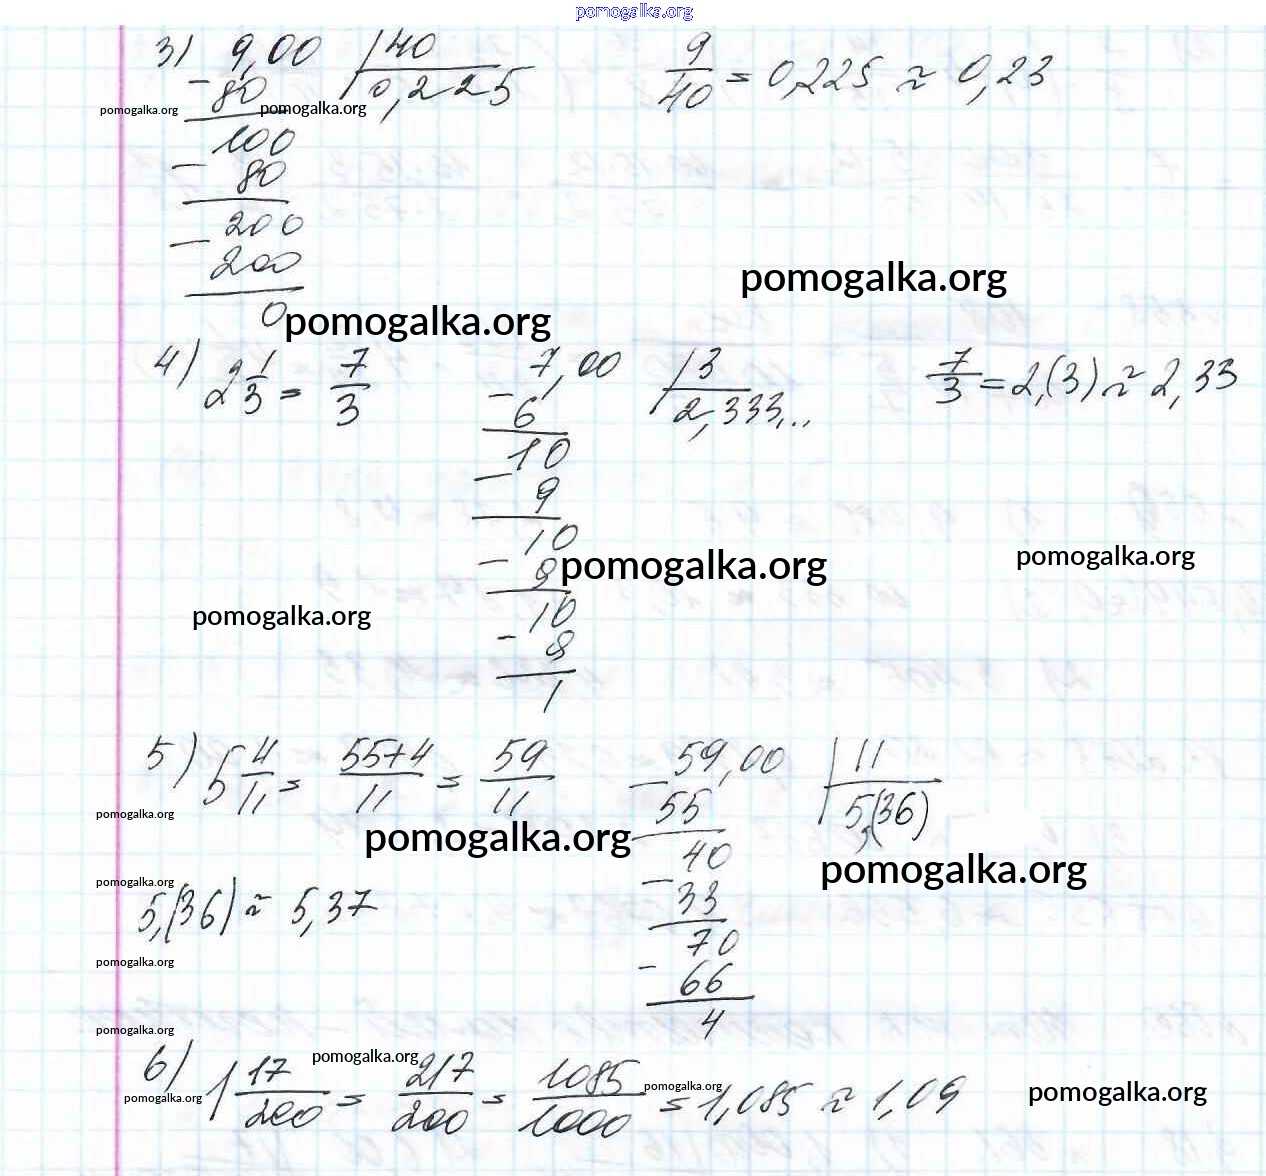 pomogalka.org
3) 9,00 | 40 9/40 = 0,225 ≈ 0,23
- 80 0,225
pomogalka.org pomogalka.org
100
- 80
200
- 200
pomogalka.org
0
pomogalka.org
4) 2 1/3 = 7/3 7,00 | 3 7/3 = 2,(3) ≈ 2,33
- 6 2,333...
10
- 9
10
- 9
pomogalka.org pomogalka.org
10
pomogalka.org
- 9
1
5) 5 4/11 = 55+4/11 = 59/11 59,00 | 11
- 55 5,(36)
pomogalka.org
pomogalka.org
40
pomogalka.org
pomogalka.org
- 33
5,(36) ≈ 5,37
70
pomogalka.org
- 66
4
pomogalka.org
pomogalka.org
6) 1 17/200 = 217/200 = 1085/1000 = 1,085 ≈ 1,09
pomogalka.org
pomogalka.org
pomogalka.org